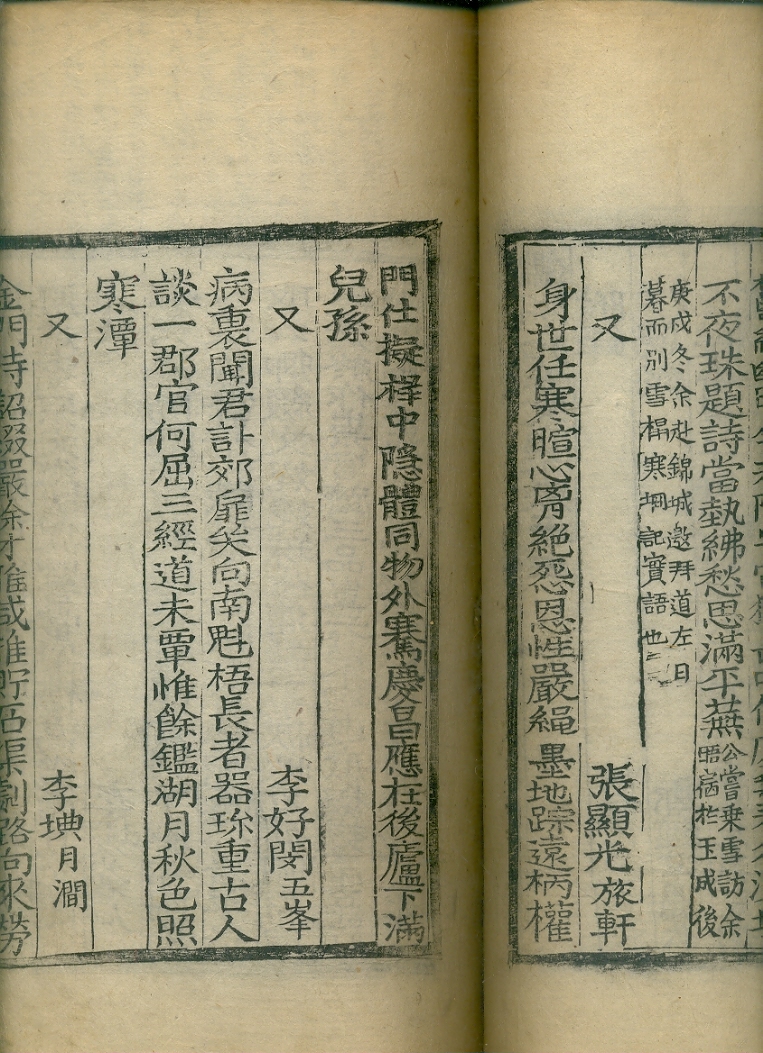 不夜珠題詩當執紼愁思滿平蕪
公嘗乘雪訪余
晤宿於玉成後
庚戌冬余赴錦城邀拜道左日
暮而別雪楊寒垌記實語也
又 張顯光旅軒
身世任寒暄心胷絶怨恩性嚴繩墨地踪遠柄權
門仕擬中隱體同物外騫慶昌應在後廬下滿
兒孫
又 李好閔五峯
病裏聞君訃郊扉矣向南魁梧長者器珎重古人
談一郡官何屈三經道未覃惟餘鑑湖月秋色照
寒潭
又 李㙉月澗
金門待詔綴嚴徐才推貯石渠劇路向來勞